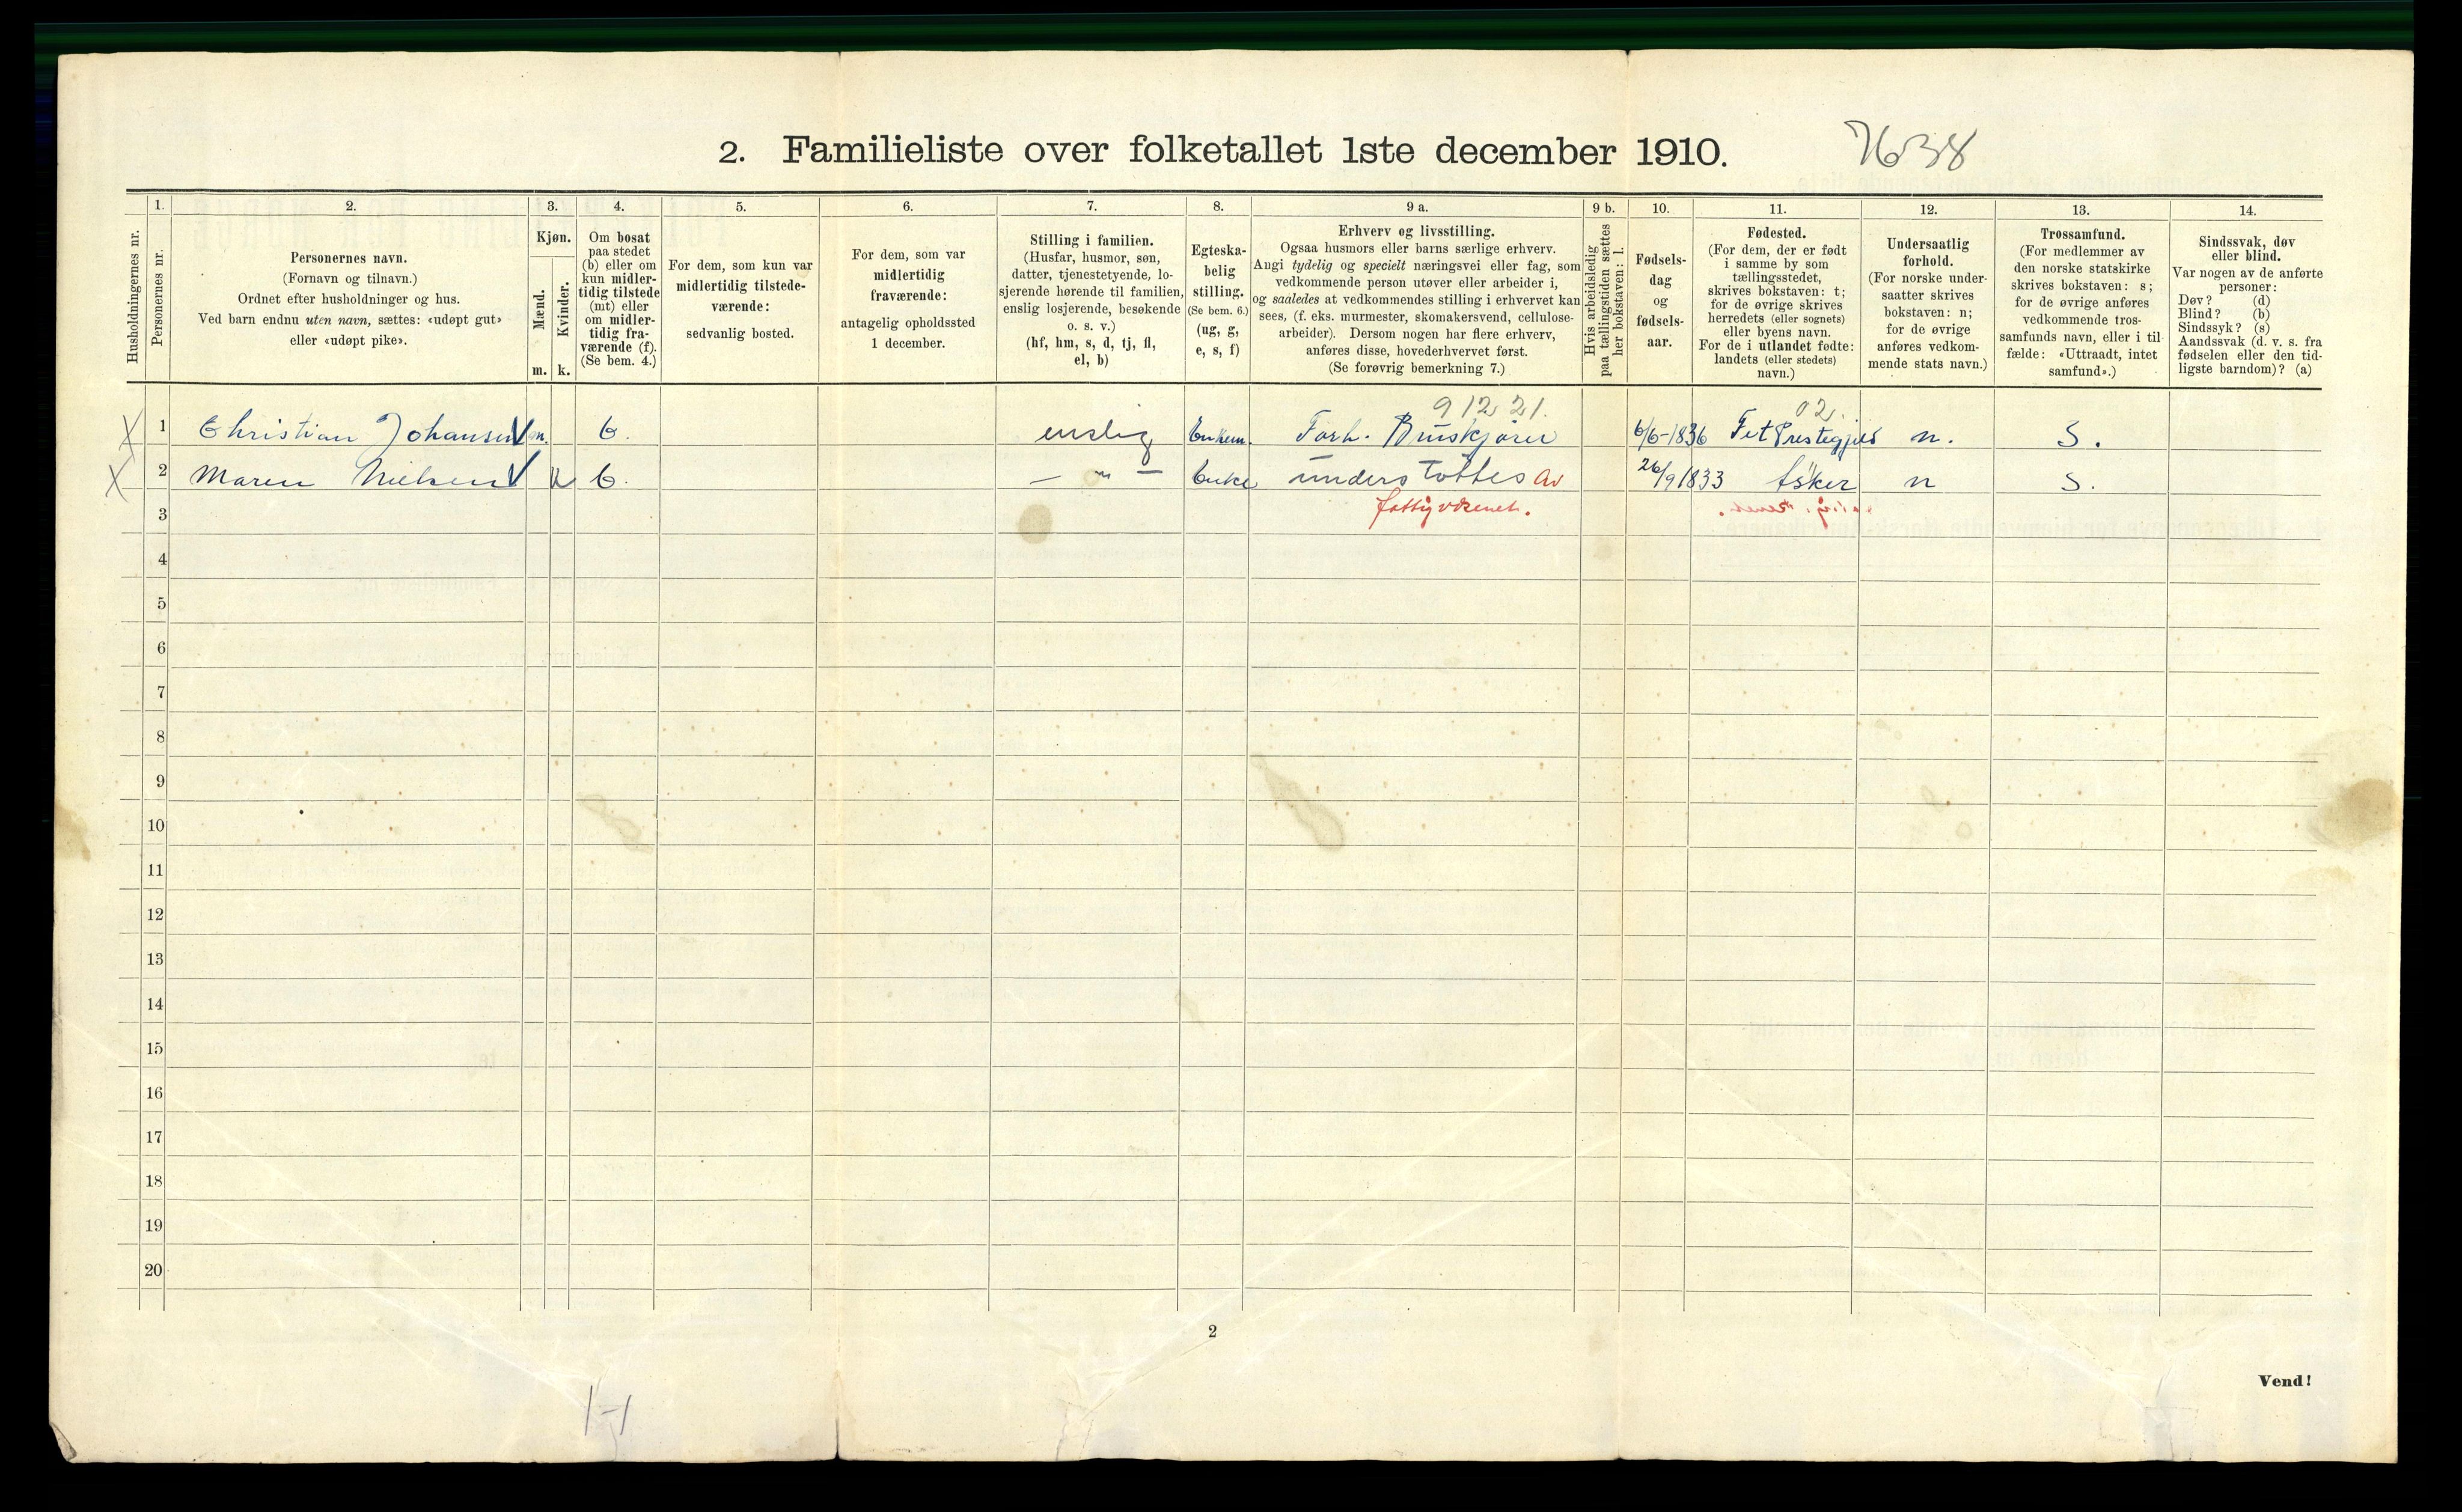 2. Familieliste over folketallet 1ste december 1910. 7638
Husholdningernes nr.
1.
Personernes nr.
2.
Personernes navn.
(Fornavn og tilnavn.)
Ordnet efter husholdninger og hus.
Ved barn endnu uten navn, sættes: «udøpt gut»
eller «udøpt pike».
3.
Kjøn.
Mænd.
Kvinder.
m. k.
4.
Om bosat
paa stedet
(b) eller om
kun midler-
tidig tilstede
(mt) eller
om midler-
tidig fra-
værende (f).
(Se bem. 4.)
5.
For dem, som kun var
midlertidig tilstede-
værende:
sedvanlig bosted.
6.
For dem, som var
midlertidig
fraværende:
antagelig opholdssted
1 december.
7.
Stilling i familien.
(Husfar, husmor, søn,
datter, tjenestetyende, lo-
sjerende hørende til familien,
enslig losjerende, besøkende
o. s. v.)
(hf, hm, s, d, tj, fl,
el, b)
8.
Egteska-
belig
stilling.
(Se bem. 6.)
(ug, g,
e, s, f)
9 a.
Erhverv og livsstilling.
Ogsaa husmors eller barns særlige erhverv.
Angi tydelig og specielt næringsvei eller fag, som
vedkommende person utøver eller arbeider i,
og saaledes at vedkommendes stilling i erhvervet kan
sees, (f. eks. murmester, skomakersvend, cellulose-
arbeider). Dersom nogen har flere erhverv,
anføres disse, hovederhvervet først.
(Se forøvrig bemerkning 7.)
9 b.
Hvis arbeidsledig
paa tællingstiden sættes
her bokstaven: l.
10.
Fødsels-
dag
og
fødsels-
aar.
11.
Fødested.
(For dem, der er født
i samme by som
tællingsstedet,
skrives bokstaven: t;
for de øvrige skrives
herredets (eller sognets)
eller byens navn.
For de i utlandet fødte:
landets (eller stedets)
navn.)
12.
Undersaatlig
forhold.
(For norske under-
saatter skrives
bokstaven: n;
for de øvrige
anføres vedkom-
mende stats navn.)
13.
Trossamfund.
(For medlemmer av
den norske statskirke
skrives bokstaven: s;
for de øvrige anføres
vedkommende tros-
samfunds navn, eller i til-
fælde: «Uttraadt, intet
samfund».)
14.
Sindssvak, døv
eller blind.
Var nogen av de anførte
personer:
Døv? (d)
Blind? (b)
Sindssyk? (s)
Aandssvak (d. v. s. fra
fødselen eller den tid-
ligste barndom)? (a)
91221. 02.
X 1 Christian Johansen m. b. enslig Enkem. Forh. Buskjører 6/6-1836 Fet Prestegjeld n. S.
X 2 Maren Nielsen k b. — " — Enke understöttes av 26/9 1833 Asker n S.
3 fattigvæsenet.
4
5
6
7
8
9
10
11
12
13
14
15
16
17
18
19
20
2
Vend!
1-1